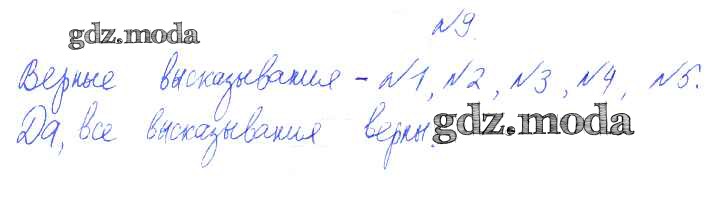 gdz.moda
№9.
Верные высказывания - №1, №2, №3, №4, №5.
Да, все высказывания верны.
gdz.moda